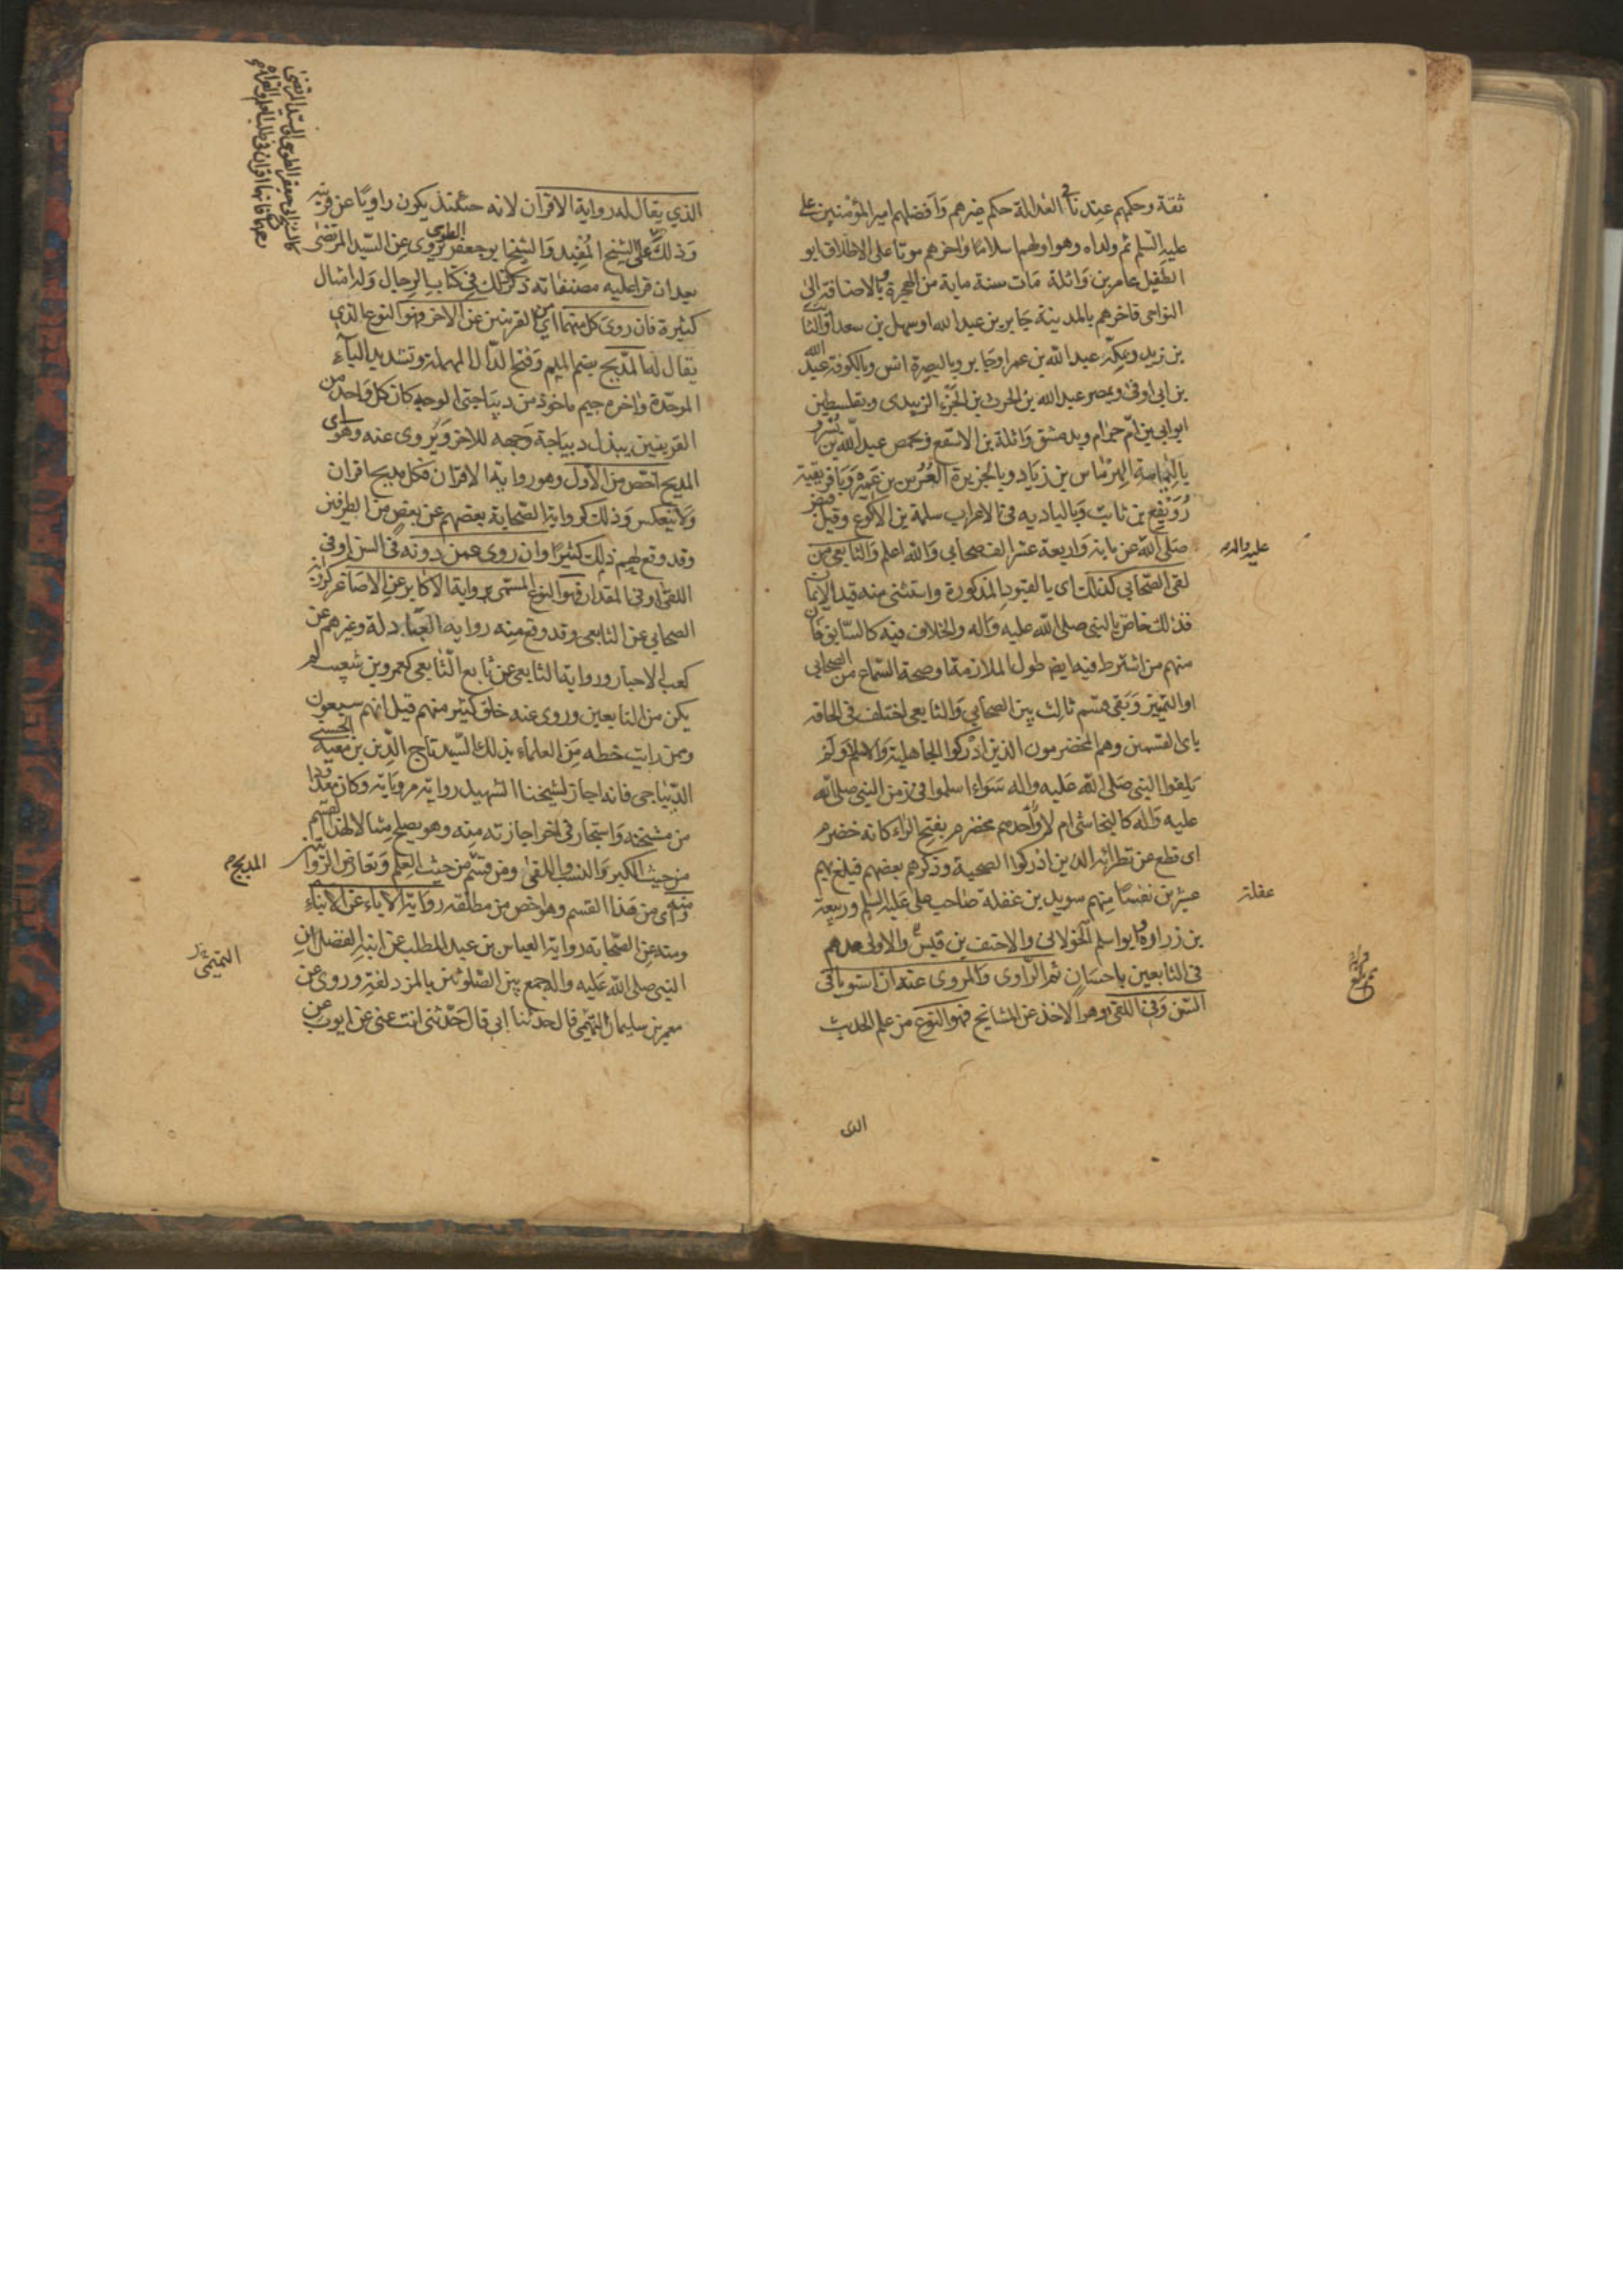 ثقة وحكمهم عندنا في العدالة حكم غيرهم وافضلهم امير المؤمنين علي
عليه السلم ثم ولداه وهو اولهم اسلاما واخرهم موتا على الاطلاق ابو
الطفيل عامر بن واثلة مات سنة ماية من الهجرة وبالاضافة الى
النواحى فاخرهم بالمدينة جابر بن عبد الله او سهل بن سعد او السائب
بن يزيد وبمكة عبد الله بن عمر او جابر وبالبصرة انس وبالكوفة عبد الله
بن ابى اوفى وبمصر عبد الله بن الحرث بن الجزء الزبيدى وبفلسطين
ابو ابي بن ام حرام وبدمشق واثلة بن الاسقع وبحمص عبد الله بن بسر و
باليمامة الهرماس بن زياد وبالجزيرة العرس بن عميرة وبافريقية
رويفع بن ثابت وبالبادية في الاعراب سلمة بن الاكوع وقيل قبض
صلى الله عن ماية واربعة عشر الف صحابي والله اعلم والتابعي من
عليه واله
لقى الصحابي كذلك اى بالقيود المذكورة واستثنى منه قيد الايمان
فذلك خاص بالنبي صلى الله عليه واله والخلاف فيه كالسابق فان
منهم من اشترط فيه ايضا طول الملازمة او صحة السماع من الصحابي
او التمييز وبقى قسم ثالث بين الصحابي والتابعى اختلف في الحاقه
باى القسمين وهم المخضرمون الذين ادركوا الجاهلية والاسلام ولم
يلقوا النبى صلى الله عليه واله سواء اسلموا في زمن النبي صلى الله
عليه واله كالنجاشى ام لا واحدهم مخضرم بفتح الراء كانه خضرم
اى قطع عن نظرائه الذين ادركوا الصحبة وذكرهم بعضهم فبلغ بهم
عشرين نفسا منهم سويد بن غفلة صاحب على عليه السلم وربيعة
غفلة
بن زرارة وابو اسلم الخولانى والاحنف بن قيس والاولى عدهم
في التابعين باحسان ثم الراوى والمروى عنه ان استويا في
السن وفي اللقى وهو الاخذ عن المشايخ فهو النوع من علم الحديث
الذى
الذي يقال له رواية الاقران لانه حينئذ يكون راويا عن قرينه
وذلك كالشيخ المفيد والشيخ ابو جعفر الطوسى يروى عن السيد المرتضى
بعد ان قرا عليه مصنفاته ذكر ذلك في كتاب الرجال وله امثال
كثيرة فان روى كل منهما اى من القرينين عن الاخر فهو النوع الذي
يقال له المدبج بضم الميم وفتح الدال المهملة وتشديد الباء
الموحدة واخره جيم ماخوذ من ديباجتى الوجه كان كل واحد من
القرينين يبذل ديباجة وجهه للاخر ويروى عنه وهو اى
المدبج اخص من الاول وهو رواية الاقران فكل مدبج اقران
ولا ينعكس وذلك كرواية الصحابة بعضهم عن بعض من الطرفين
وقد وقع لهم ذلك كثيرا وان روى عمن دونه في السن او في
اللقى او في المقدار فهو النوع المسمى برواية الاكابر عن الاصاغر كرواية
الصحابي عن التابعى وقد وقع منه رواية العبادلة وغيرهم عن
كعب الاحبار ورواية التابعى عن تابع التابعى كعمرو بن شعيب لم
يكن من التابعين وروى عنه خلق كثير منهم قيل انهم سبعون
وممن رايت خطه من العلماء بذلك السيد تاج الدين بن معية الحسنى
الديباجى فانه اجاز لشيخنا الشهيد رواية مروياته وكان معدودا
من مشيخته واستجاز في اخر اجازته منه وهو يصلح مثالا لهذا القسم
من حيث الكبر والنسب واللقى ومن قسم من حيث العلم وتعارض الروايتين
المدبج م
ومنه اى من هذا القسم وهو اخص من مطلقه رواية الاباء عن الابناء
ومنه عن الصحابة رواية العباس بن عبد المطلب عن ابنه الفضل ان
النبي صلى الله عليه واله جمع بين الصلوتين بالمزدلفة وروى عن
معمر بن سليمان التيمى قال حدثنا ابي قال حدثنى انت عنى عن ايوب عن
التميمي